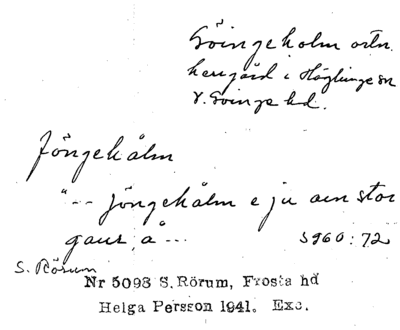 Göingeholm ortn.
herrgård i Häglinge sn
V. Göinge hd.
Jöngehålm
"-- jöngehålm e ju aen stor
gaur, a" --- 5960:72
S. Rörum
Nr 5093 S. Rörum, Frosta hd
Helga Persson 1941. Exc.